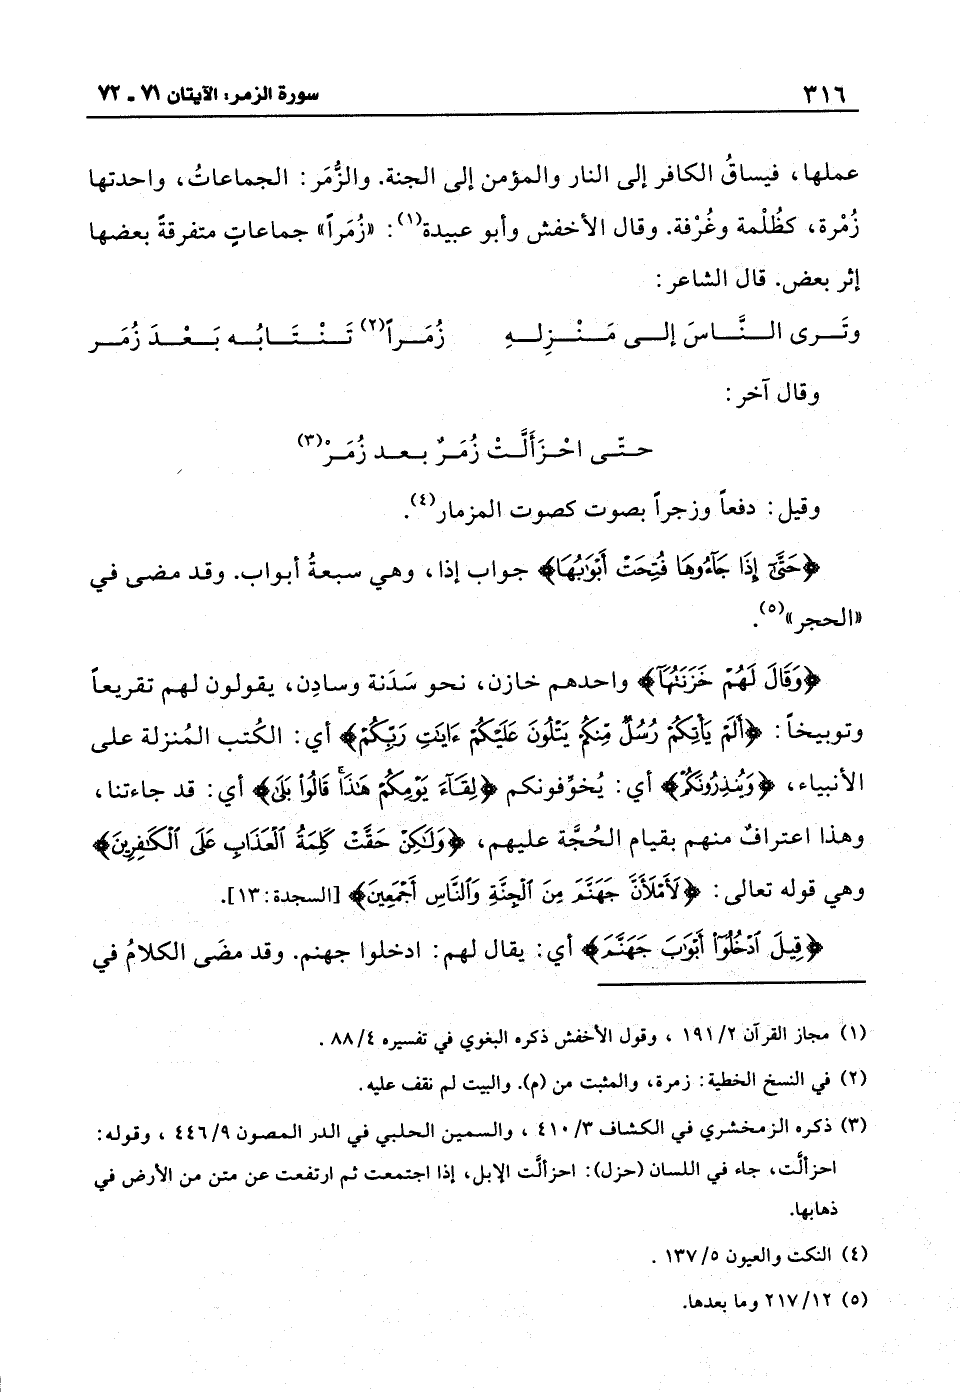 ٣١٦ سورة الزمر: الآيتان ٧١ ـ ٧٢
عملها، فيساقُ الكافر إلى النار والمؤمن إلى الجنة. والزُّمَر: الجماعاتُ، واحدتها
زُمْرة، كظُلْمة وغُرْفة. وقال الأخفش وأبو عبيدة(١): «زُمَراً» جماعاتٍ متفرقةً بعضها
إثر بعض. قال الشاعر:
وتَـرى الـنَّـاسَ إلـى مَـنْـزِلـهِ زُمَـراً(٢) تَـنْـتَـابُـه بَـعْـدَ زُمَـر
وقال آخر:
حـتّـى احْـزَأَلَّـتْ زُمَـرٌ بـعـد زُمَـرْ(٣)
وقيل: دفعاً وزجراً بصوت كصوت المزمار(٤).
﴿حَتَّىٰٓ إِذَا جَآءُوهَا فُتِحَتْ أَبْوَٰبُهَا﴾ جواب إذا، وهي سبعةُ أبواب. وقد مضى في
«الحجر»(٥).
﴿وَقَالَ لَهُمْ خَزَنَتُهَآ﴾ واحدهم خازن، نحو سَدَنة وسادِن، يقولون لهم تقريعاً
وتوبيخاً: ﴿أَلَمْ يَأْتِكُمْ رُسُلٌ مِّنكُمْ يَتْلُونَ عَلَيْكُمْ ءَايَٰتِ رَبِّكُمْ﴾ أي: الكتب المُنزلة على
الأنبياء، ﴿وَيُنذِرُونَكُمْ﴾ أي: يُخوِّفونكم ﴿لِقَآءَ يَوْمِكُمْ هَٰذَا ۚ قَالُوا۟ بَلَىٰ﴾ أي: قد جاءتنا،
وهذا اعترافٌ منهم بقيام الحُجَّة عليهم، ﴿وَلَٰكِنْ حَقَّتْ كَلِمَةُ ٱلْعَذَابِ عَلَى ٱلْكَٰفِرِينَ﴾
وهي قوله تعالى: ﴿لَأَمْلَأَنَّ جَهَنَّمَ مِنَ ٱلْجِنَّةِ وَٱلنَّاسِ أَجْمَعِينَ﴾ [السجدة: ١٣].
﴿قِيلَ ٱدْخُلُوٓا۟ أَبْوَٰبَ جَهَنَّمَ﴾ أي: يقال لهم: ادخلوا جهنم. وقد مضَى الكلامُ في
(١) مجاز القرآن ٢/ ١٩١ ، وقول الأخفش ذكره البغوي في تفسيره ٤/ ٨٨ .
(٢) في النسخ الخطية: زمرة، والمثبت من (م). والبيت لم نقف عليه.
(٣) ذكره الزمخشري في الكشاف ٣/ ٤١٠ ، والسمين الحلبي في الدر المصون ٩/ ٤٤٦ ، وقوله:
احزألَّت، جاء في اللسان (حزل): احزألَّت الإبل، إذا اجتمعت ثم ارتفعت عن متن من الأرض في
ذهابها.
(٤) النكت والعيون ٥/ ١٣٧ .
(٥) ١٢/ ٢١٧ وما بعدها.